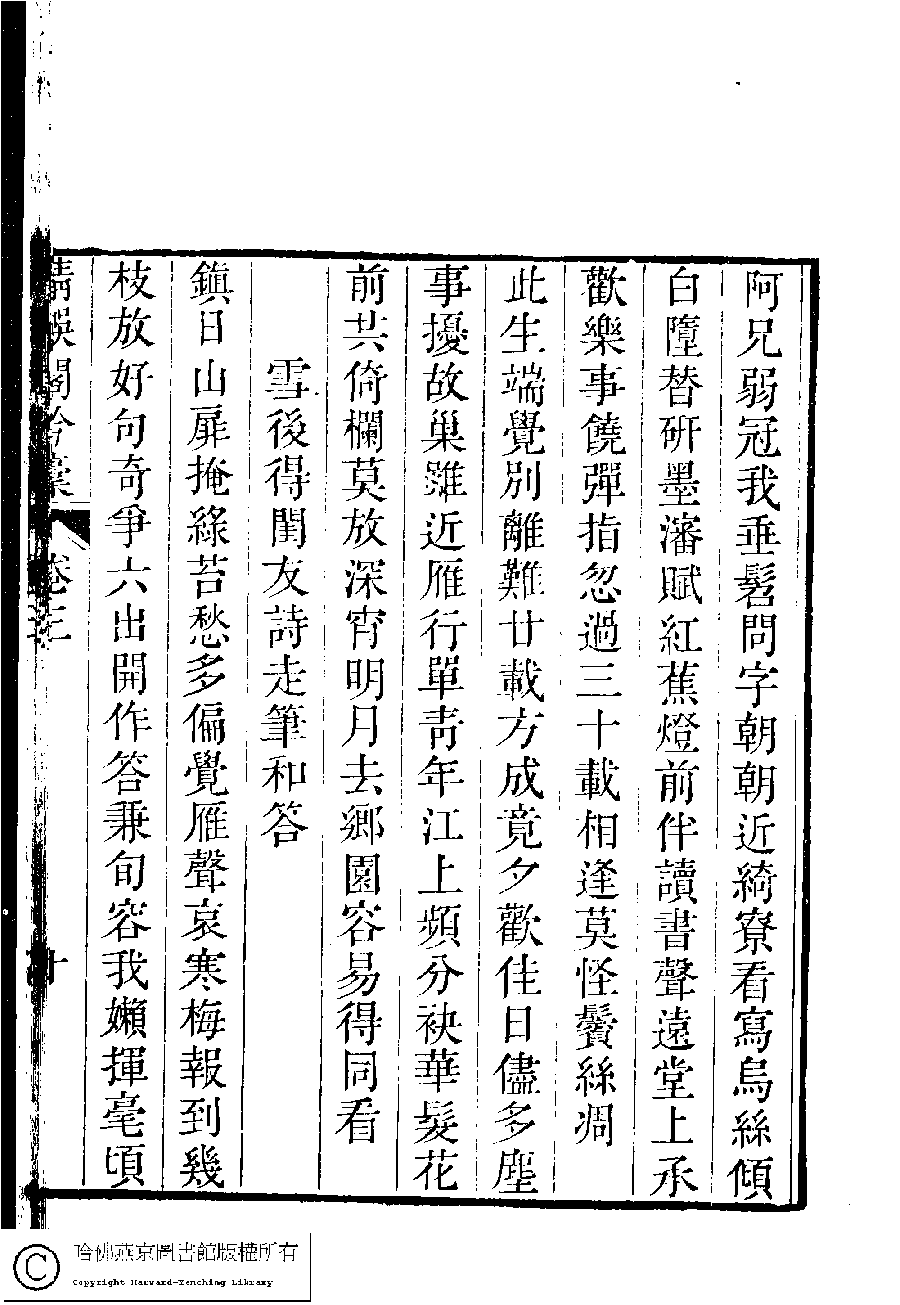 阿兄弱冠我垂髫問字朝朝近綺寮看寫烏絲傾
白墮替研墨瀋賦紅蕉燈前伴讀書聲遠堂上承
歡樂事饒彈指忽過三十載相逢莫怪鬢絲凋
此生端覺別離難廿載方成竟夕歡佳日儘多塵
事擾故巢雖近雁行單靑年江上頻分袂華髮花
前共倚欄莫放深宵明月去鄉園容易得同看
雪後得閨友詩走筆和答
鎮日山扉掩綠苔愁多偏覺雁聲哀寒梅報到幾
枝放好句奇爭六出開作答兼旬容我嬾揮毫頃
閣吟稾 卷三
哈佛燕京圖書館版權所有
Copyright Harvard-Yenching Library